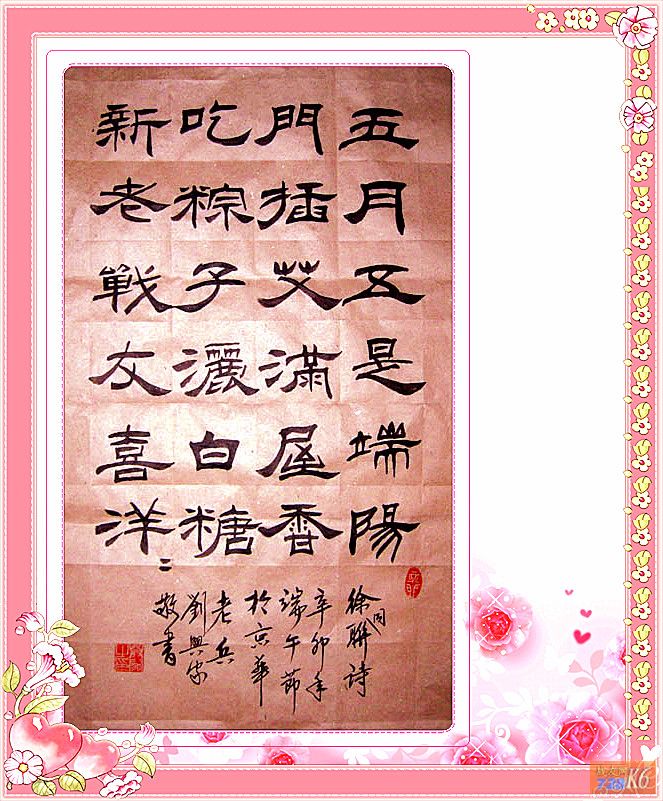 五月五是端陽
門插艾滿屋香
吃粽子灑白糖
新老戰友喜洋〻
徐聯詩
辛卯年
端午節
於京華
老兵
劉興
敬書
K6